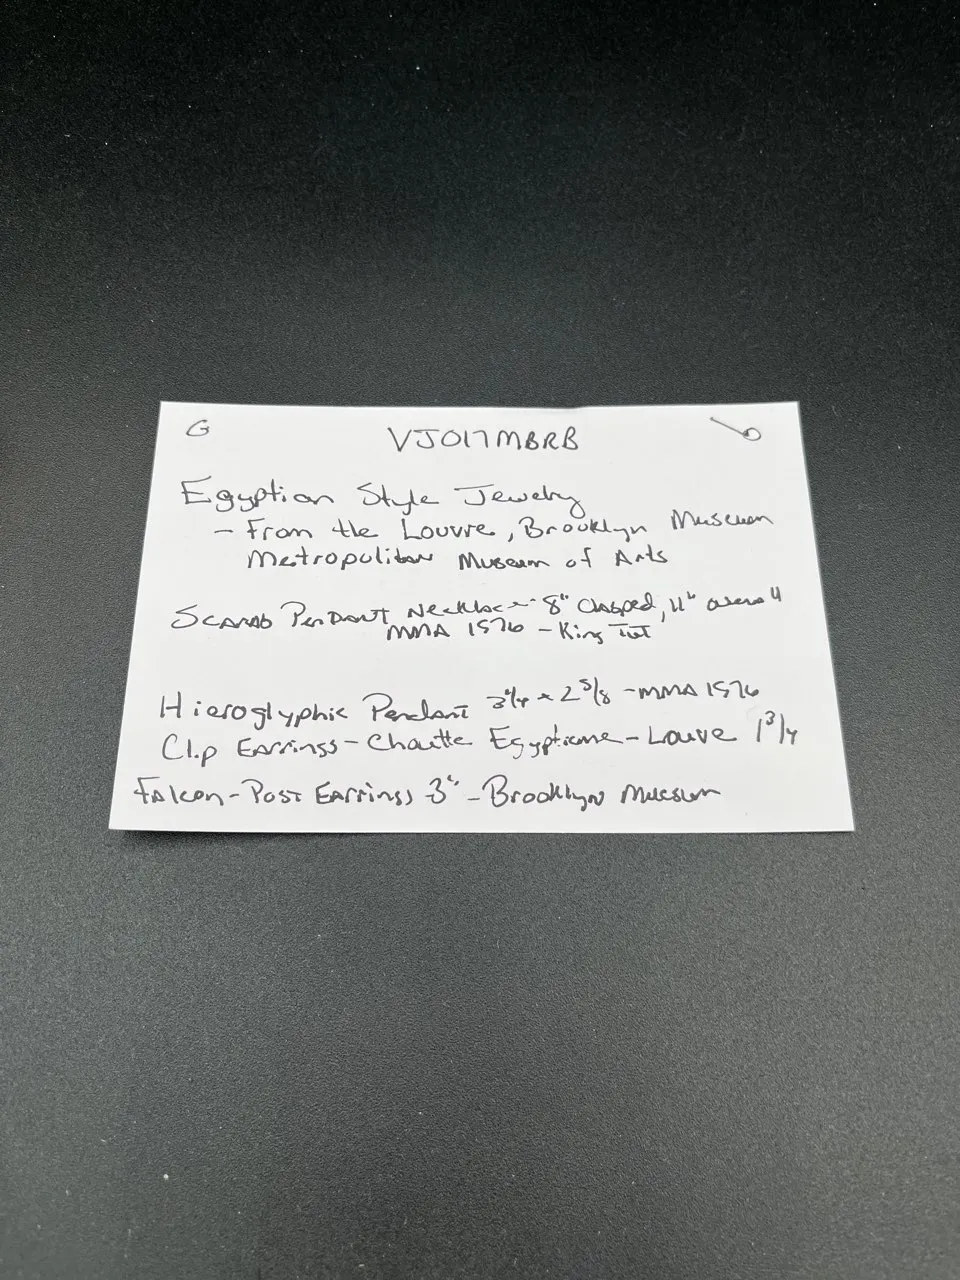 G VJ017MBRB
Egyptian Style Jewelry
- From the Louvre, Brooklyn Museum
Metropolitan Museum of Arts
Scarab Pendant Necklace - 8" Clasped, 11"
MMA 1976 - King Tut
Hieroglyphic Pendant 3 1/4 x 2 5/8 - MMA 1976
Clip Earrings - Chouette Egyptienne - Louvre 1 3/4
Falcon - Post Earrings 3" - Brooklyn Museum